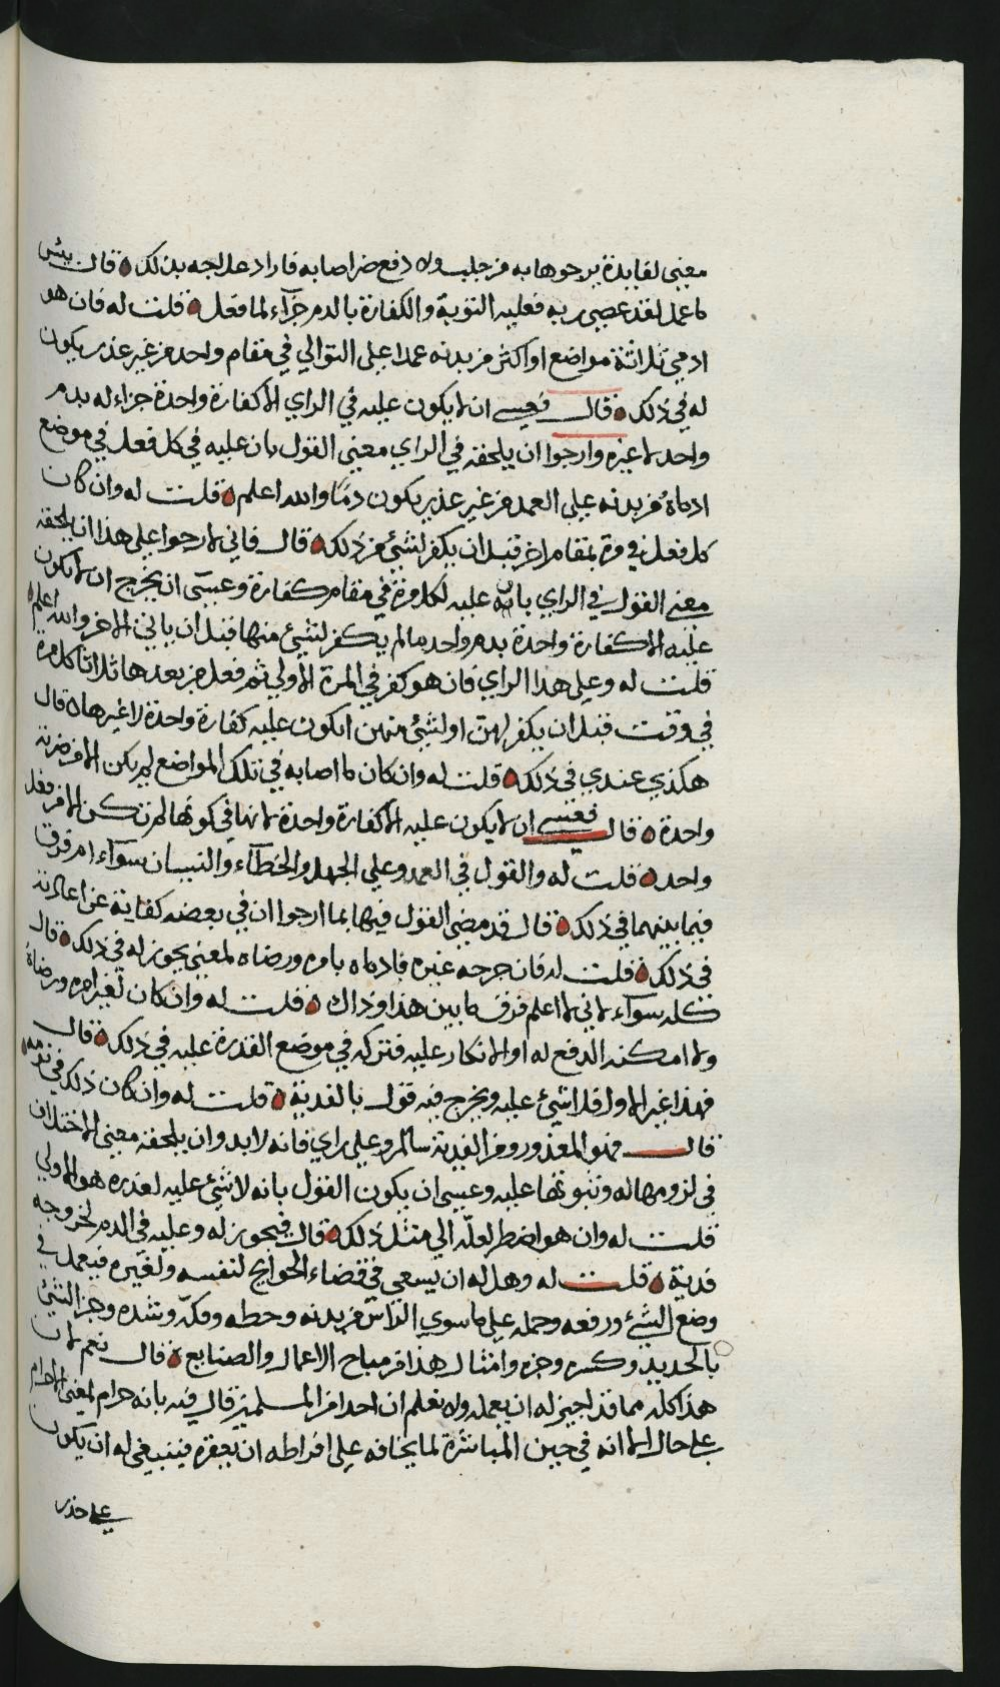 معنى لفايدة يرجوها به من جلب ولا دفع ضر اصابه فاراد علاجه بذلك قال بئس
ما عمل لقد عصى ربه فعليه التوبة والكفارة بالدم جزآء لما فعل قلت له فان هو
ادمي ثلاثة مواضع او اكثر من بدنه عمدا على التوالي في مقام واحد من غير عذر يكون
له في ذلك قال فعسى ان لا يكون عليه في الراي الا كفارة واحدة جزاء له بدم
واحد لا غيره وارجوا ان يلحقه في الراي معنى القول بان عليه في كل فعل في موضع
ادماه من بدنه على العمد من غير عذر يكون دمًا والله اعلم قلت له وان كان
كل فعل في مرة بمقام اخر قبل ان يكفر لشيء من ذلك قال فاني لارجوا على هذا ان يلحقه
معنى القول في الراي بان عليه لكل مرة في مقام كفارة وعسى ان يخرج ان لا يكون
عليه الا كفارة واحدة بدم واحد ما لم يكفر لشيء منها قبل ان ياتي الاخر والله اعلم
قلت له وعلى هذا الراي فان هو كفر في المرة الاولي ثم فعل من بعدها ثلاثا كل مرة
في وقت قبل ان يكفر لهن او لشيء منهن ايكون عليه كفارة واحدة لا غيرها قال
هكذي عندي في ذلك قلت له وان كان ما اصابه في تلك المواضع لم يكن الا من ضربة
واحدة قال فعسى ان لا يكون عليه الا كفارة واحدة لانها في كونها لم تكن الا من فعل
واحد قلت له والقول في العمد وعلى الجهل والخطآء والنسيان سوآء ام فرق
فيما بينهما في ذلك قال قد مضى القول فيها بما ارجوا ان في بعضه كفاية عن اعادته
في ذلك قلت له فان جرحه غيره فادماه بامره ورضاه لمعنى يجوز له في ذلك قال
كله سوآء لاني لا اعلم فرق ما بين هذا وذاك قلت له وان كان لغير امره ورضاه
ولا امكنه الدفع له او الانكار عليه فتركه في موضع القدرة عليه في ذلك قال
فهذا غير الاول فلا شيء عليه ويخرج فيه قول بالفدية قلت له وان كان ذلك في نومه
قال فهو المعذور ومن الفدية سالم وعلى راي فانه لا بد وان يلحقه معنى الاختلاف
في لزومها له وثبوتها عليه وعسى ان يكون القول بانه لا شيء عليه لعذره هو الاولي
قلت له وان هو اضطر لعلّة الي مثل ذلك قال فيجوز له وعليه في الدم لخروجه
فدية قلت له وهل له ان يسعى في قضاء الحوايج لنفسه ولغيره فيعمل في
وضع الشيء ورفعه وحمله على ما سوى الراس من بدنه وحطه وفكّه وشده وجز الشيء
بالحديد وكسره وجزه وامثال هذا من مباح الاعمال والصنايع قال نعم لان
هذا كله مما قد اجيز له ان يعمله ولا نعلم ان احدا من المسلمين قال فيه بانه حرام لمعنى الاحرام
على حال الا انه في حين المباشرة لما يخافه على افراطه ان يعقره فينبغي له ان يكون
على حذر